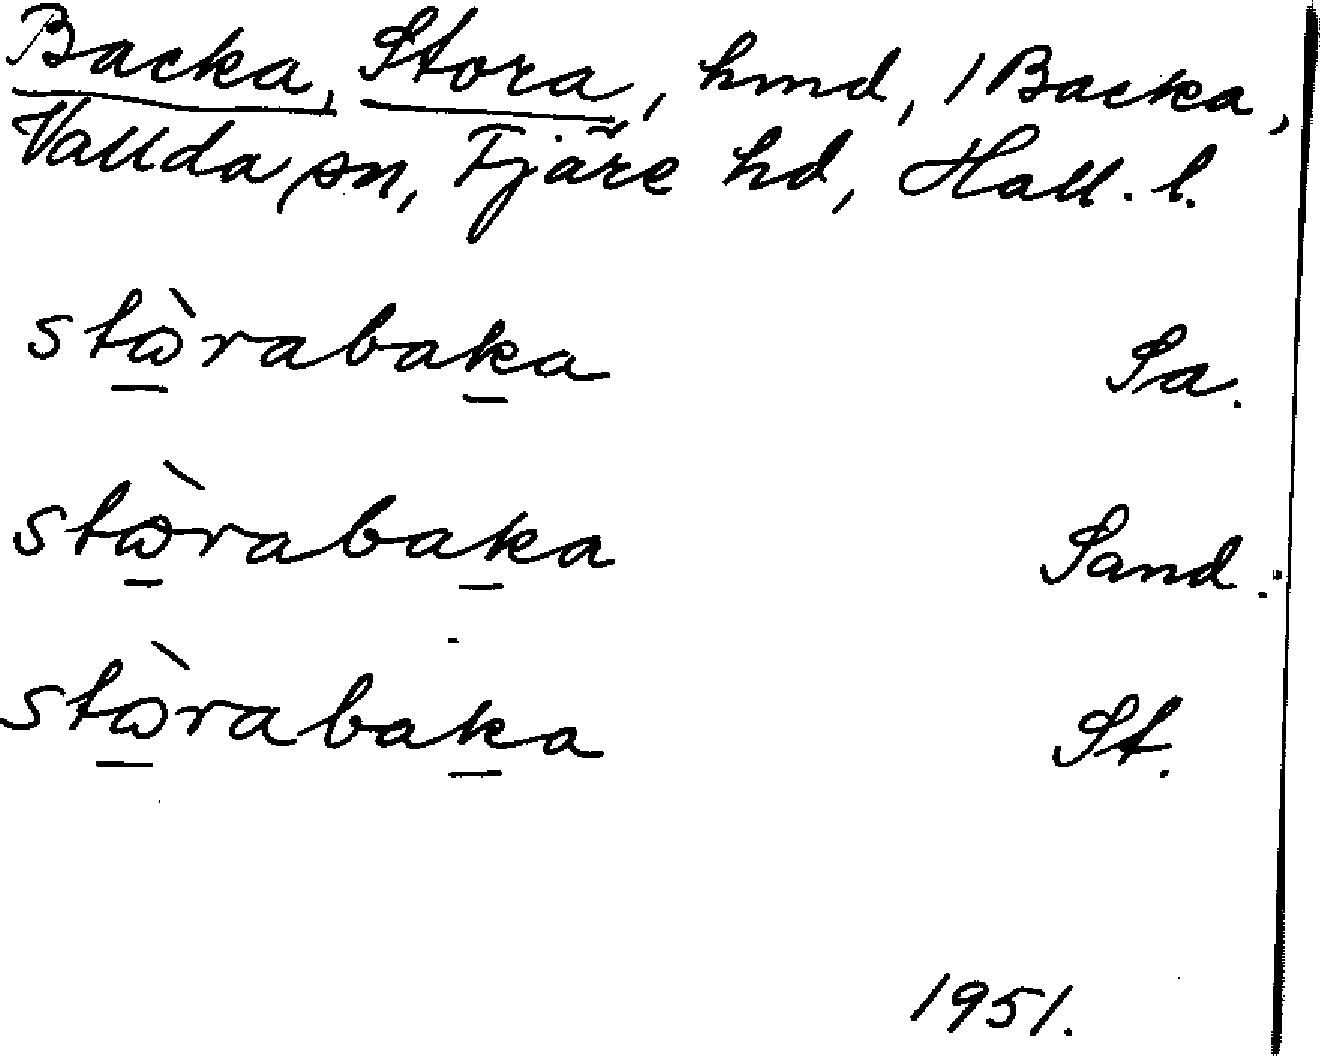 Backa, Stora, hmd, 1 Backa,
Vallda sn, Fjäre hd, Hall. l.
stɷ̀rabaka Sa.
stɷ̀rabaka Sand.
stɷ̀rabaka St.
1951.